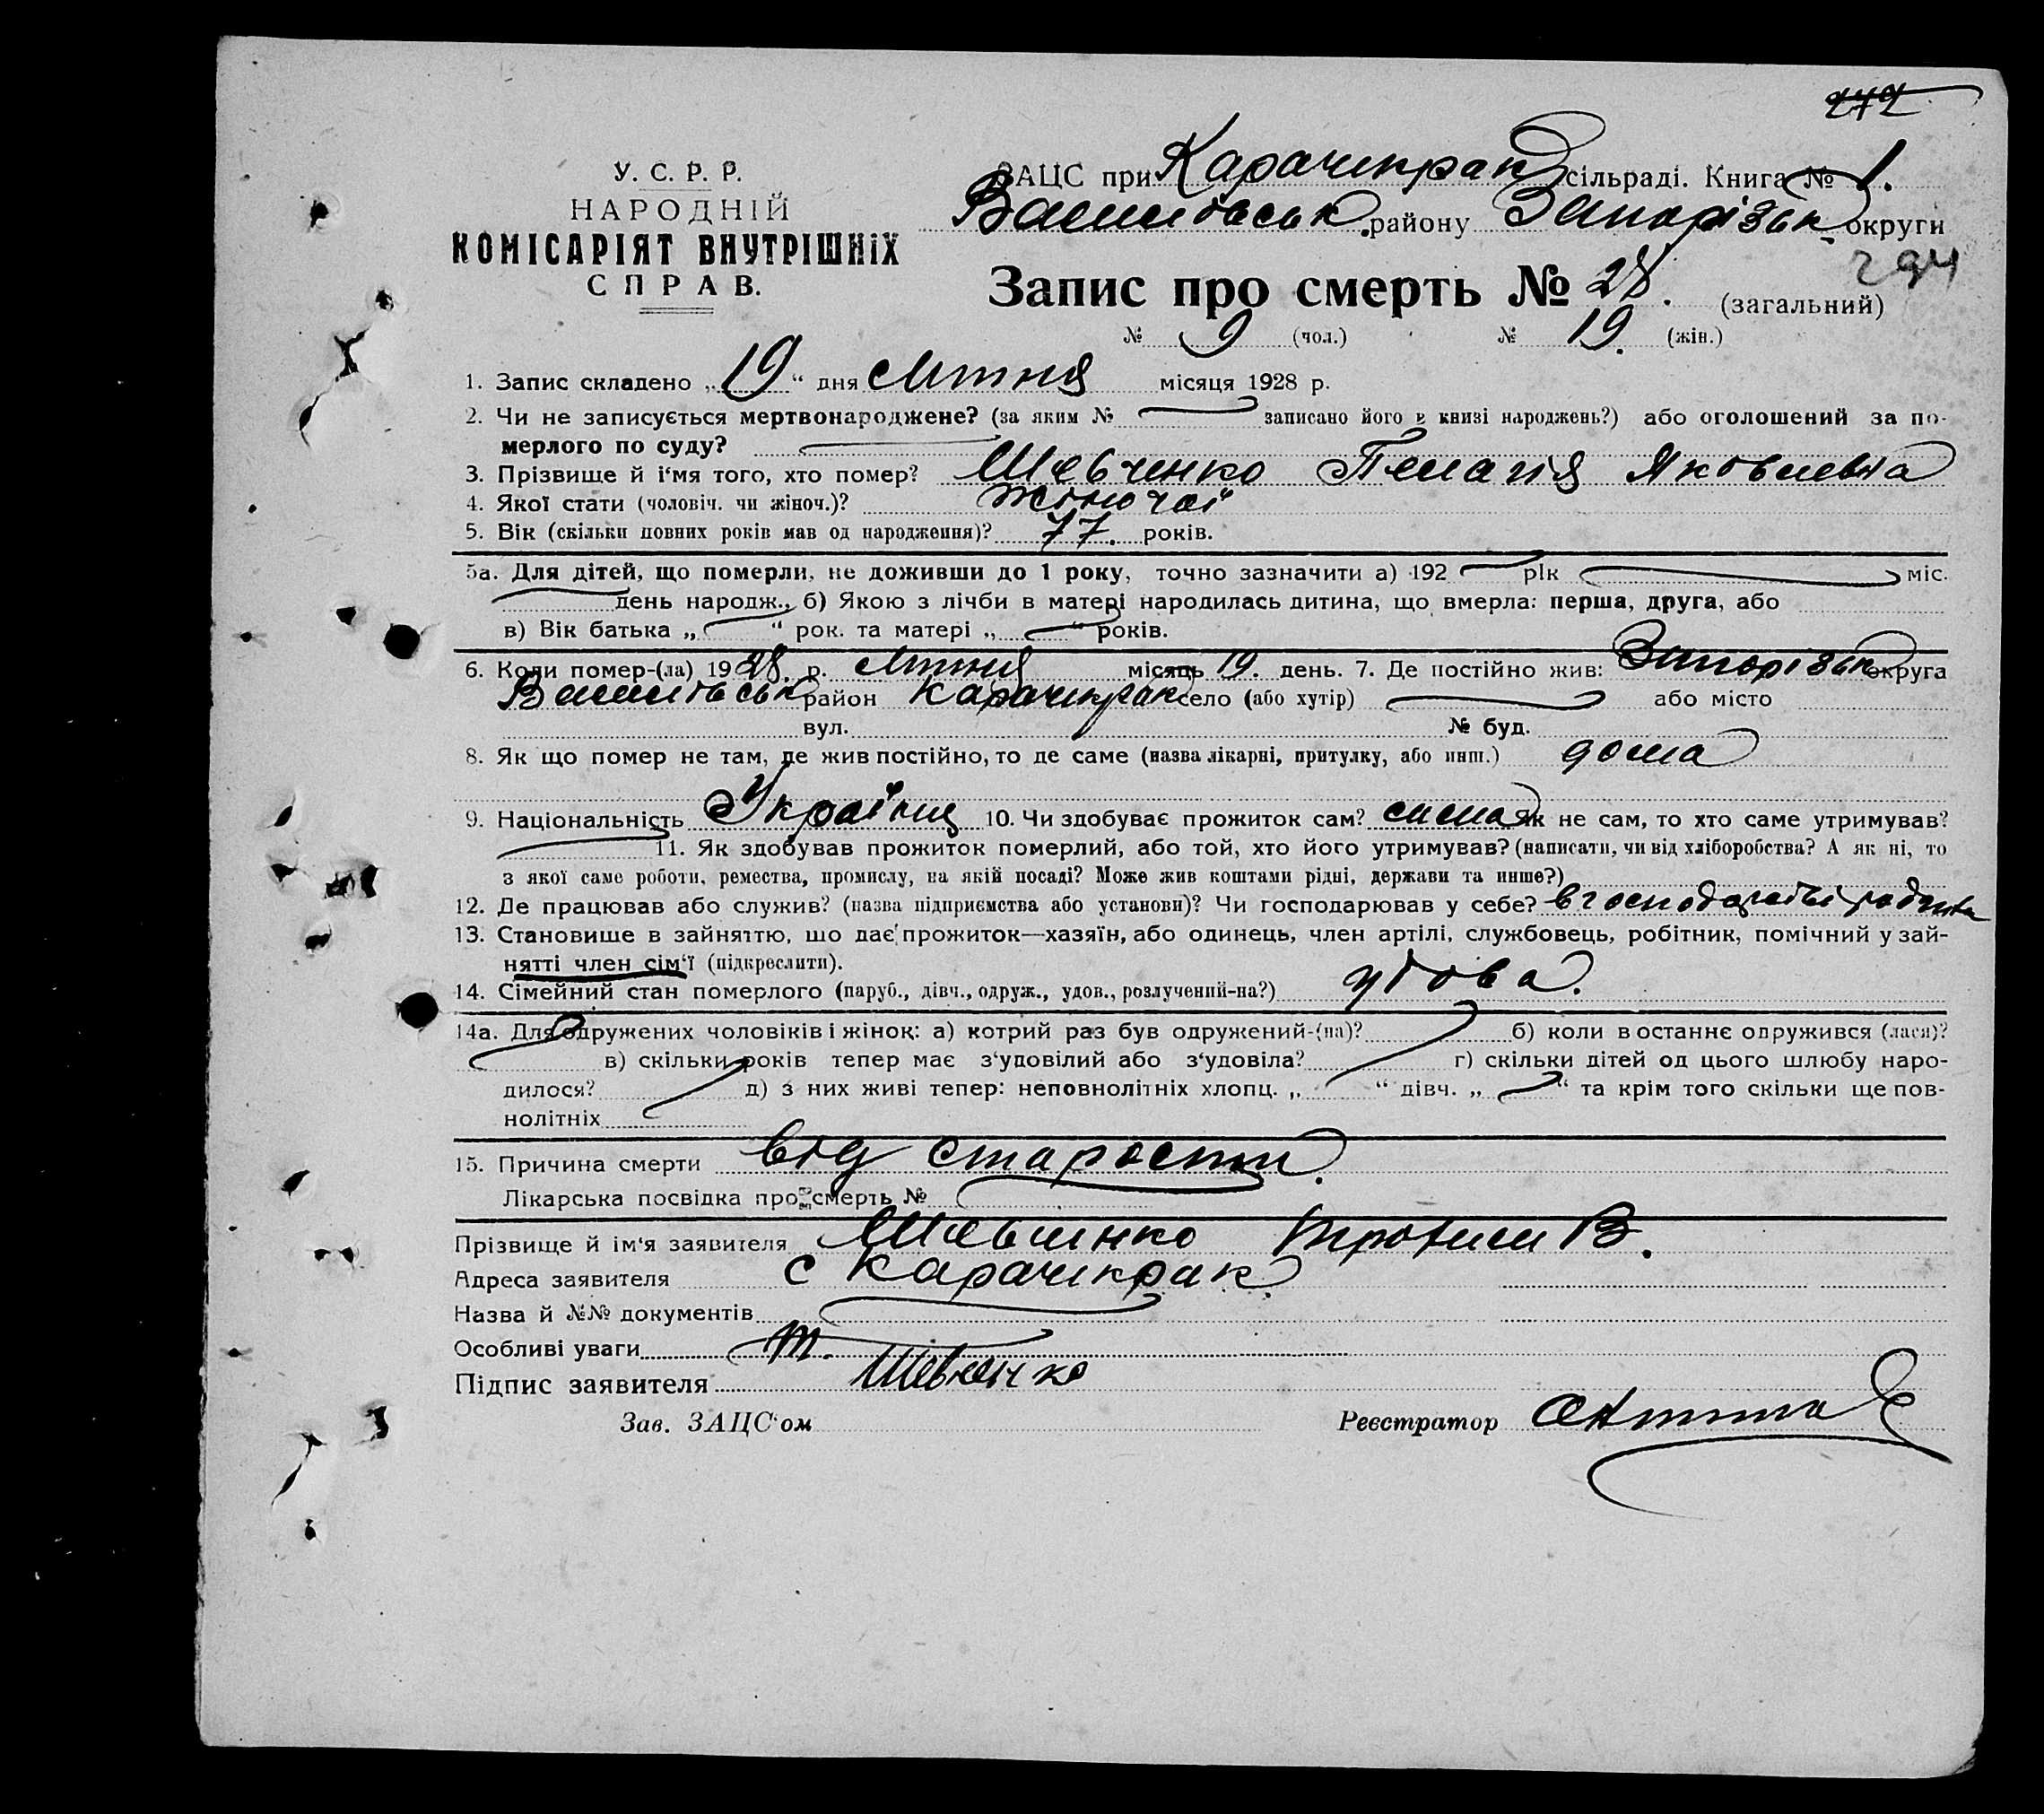 272
У. С. Р. Р.
НАРОДНІЙ
КОМІСАРІЯТ ВНУТРІШНІХ
СПРАВ.
ЗАЦС при Карачекрак сільраді. Книга № 1.
Василівськ. району Запорізьк округи
294
Запис про смерть № 28. (загальний)
№ 9 (чол.) № 19. (жін.)
1. Запис складено „19“ дня Лютня місяця 1928 р.
2. Чи не записується мертвонароджене? (за яким № записано його в книзі народжень?) або оголошений за по-
мерлого по суду?
3. Прізвище й і‘мя того, хто помер? Шевченко Пелагія Яковлевна
4. Якої стати (чоловіч. чи жіноч.)? жіночої
5. Вік (скільки повних років мав од народження)? 77. років.
5а. Для дітей, що померли, не доживши до 1 року, точно зазначити а) 192 рік міс.
день народж., б) Якою з лічби в матері народилась дитина, що вмерла: перша, друга, або
в) Вік батька „ “ рок. та матері „ “ років.
6. Коли помер-(ла) 1928. р. Лютня місяць 19. день. 7. Де постійно жив: Запорізьк округа
Василівськ район Карачикрак село (або хутір) або місто
вул. № буд.
8. Як що помер не там, де жив постійно, то де саме (назва лікарні, притулку, або инш.) дома
9. Національність Україниц 10. Чи здобуває прожиток сам? сисма як не сам, то хто саме утримував?
11. Як здобував прожиток померлий, або той, хто його утримував? (написати, чи від хліборобства? А як ні, то
з якої саме роботи, ремества, промислу, на якій посаді? Може жив коштами рідні, держави та инше?)
12. Де працював або служив? (назва підприємства або установи)? Чи господарював у себе? в господарстві
13. Становише в зайняттю, що дає прожиток—хазяїн, або одинець, член артілі, службовець, робітник, помічний у зай-
нятті член сім‘ї (підкреслити).
14. Сімейний стан померлого (паруб., дівч., одруж., удов., розлучений-на?) удова.
14а. Для одружених чоловіків і жінок: а) котрий раз був одружений-(на)? б) коли востаннє одружився (лася)?
в) скільки років тепер має з‘удовілий або з‘удовіла? г) скільки дітей од цього шлюбу наро-
дилося? д) з них живі тепер: неповнолітніх хлопц. „ “ дівч. „ “ та крім того скільки ще пов-
нолітніх
15. Причина смерти від старости.
Лікарська посвідка про смерть №
Прізвище й ім‘я заявителя Шевченко Трофим В.
Адреса заявителя с Карачикрак.
Назва й №№ документів
Особливі уваги
Підпис заявителя Т. Шевченко
Зав. ЗАЦС‘ом Реєстратор